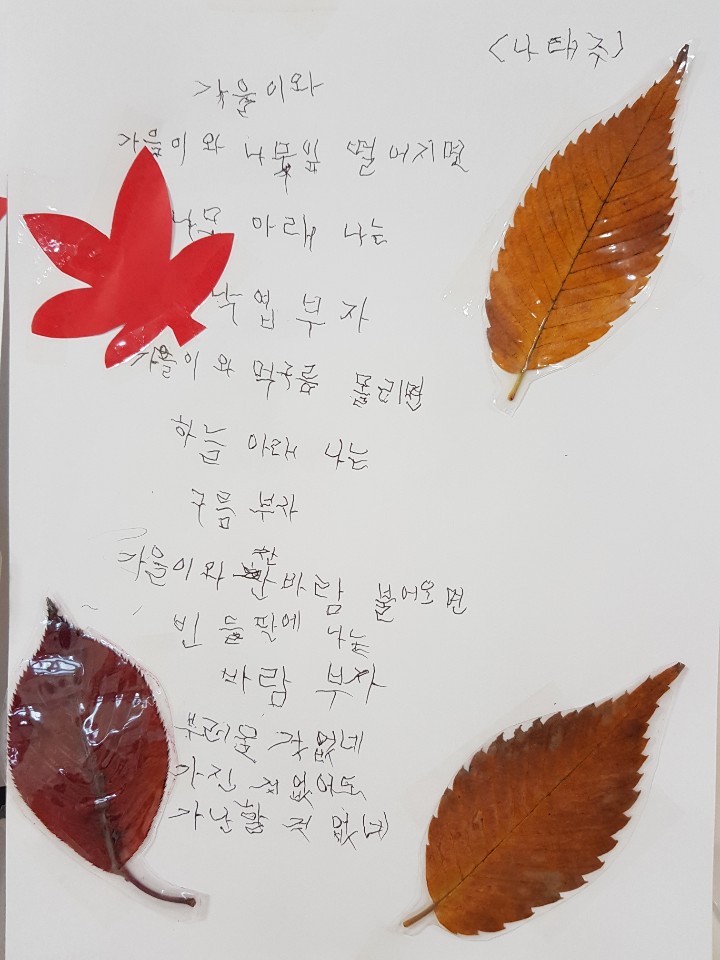 <나태주>
가을이와
가을이 와 나뭇잎 떨어지면
나무 아래 나는
낙엽 부자
가을이 와 먹구름 몰리면
하늘 아래 나는
구름 부자
가을이 와 찬바람 불어오면
빈 들판에 나는
바람 부자
부러울 것 없네
가진 것 없어도
가난할 것 없네